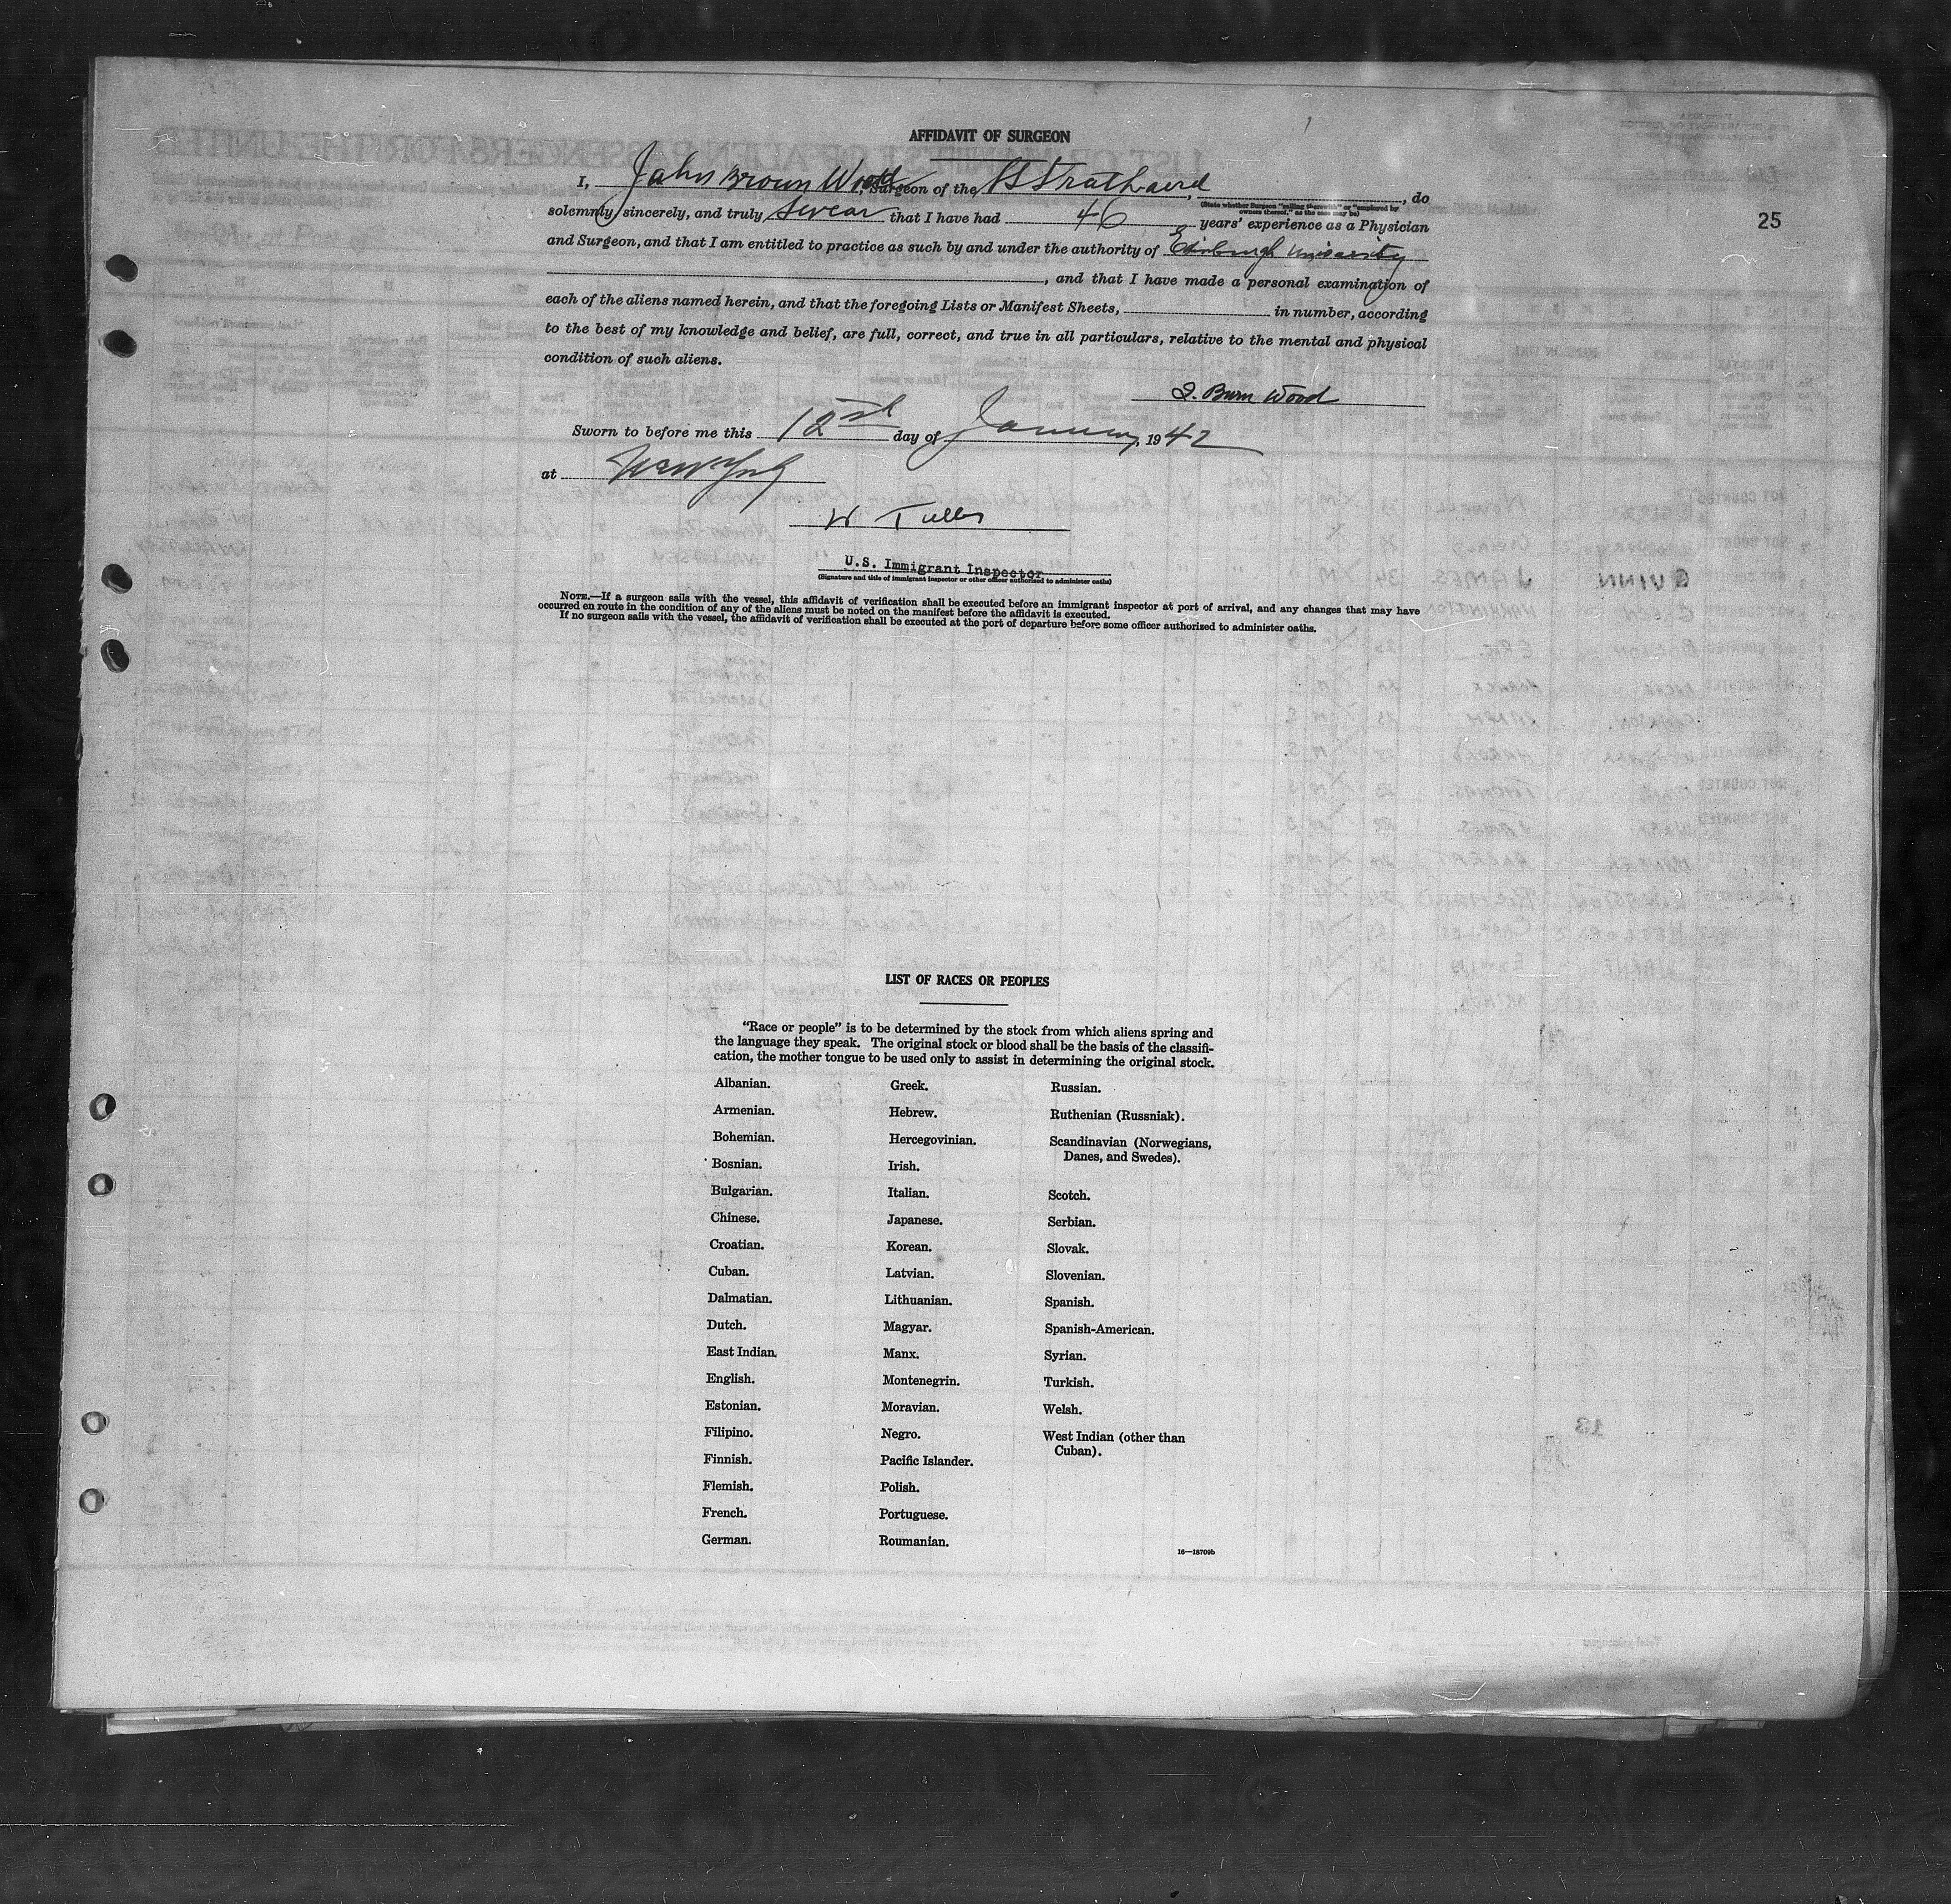 AFFIDAVIT OF SURGEON
25
I, John Brown Wood, Surgeon of the SS Strathaird, do
(State whether Surgeon "sailing therewith" or "employed by
owners thereof," as the case may be)
solemnly, sincerely, and truly swear that I have had 46 years' experience as a Physician
and Surgeon, and that I am entitled to practice as such by and under the authority of Edinburgh University
, and that I have made a personal examination of
each of the aliens named herein, and that the foregoing Lists or Manifest Sheets, in number, according
to the best of my knowledge and belief, are full, correct, and true in all particulars, relative to the mental and physical
condition of such aliens.
Wood
Sworn to before me this 12 day of January, 1942
at New York
W
U.S. Immigrant Inspector
(Signature and title of immigrant inspector or other officer authorized to administer oaths)
NOTE.—If a surgeon sails with the vessel, this affidavit of verification shall be executed before an immigrant inspector at port of arrival, and any changes that may have
occurred en route in the condition of any of the aliens must be noted on the manifest before the affidavit is executed.
If no surgeon sails with the vessel, the affidavit of verification shall be executed at the port of departure before some officer authorized to administer oaths.
LIST OF RACES OR PEOPLES
"Race or people" is to be determined by the stock from which aliens spring and
the language they speak. The original stock or blood shall be the basis of the classifi-
cation, the mother tongue to be used only to assist in determining the original stock.
Albanian.
Armenian.
Bohemian.
Bosnian.
Bulgarian.
Chinese.
Croatian.
Cuban.
Dalmatian.
Dutch.
East Indian.
English.
Estonian.
Filipino.
Finnish.
Flemish.
French.
German.
Greek.
Hebrew.
Hercegovinian.
Irish.
Italian.
Japanese.
Korean.
Latvian.
Lithuanian.
Magyar.
Manx.
Montenegrin.
Moravian.
Negro.
Pacific Islander.
Polish.
Portuguese.
Roumanian.
Russian.
Ruthenian (Russniak).
Scandinavian (Norwegians,
Danes, and Swedes).
Scotch.
Serbian.
Slovak.
Slovenian.
Spanish.
Spanish-American.
Syrian.
Turkish.
Welsh.
West Indian (other than
Cuban).
16—18709b